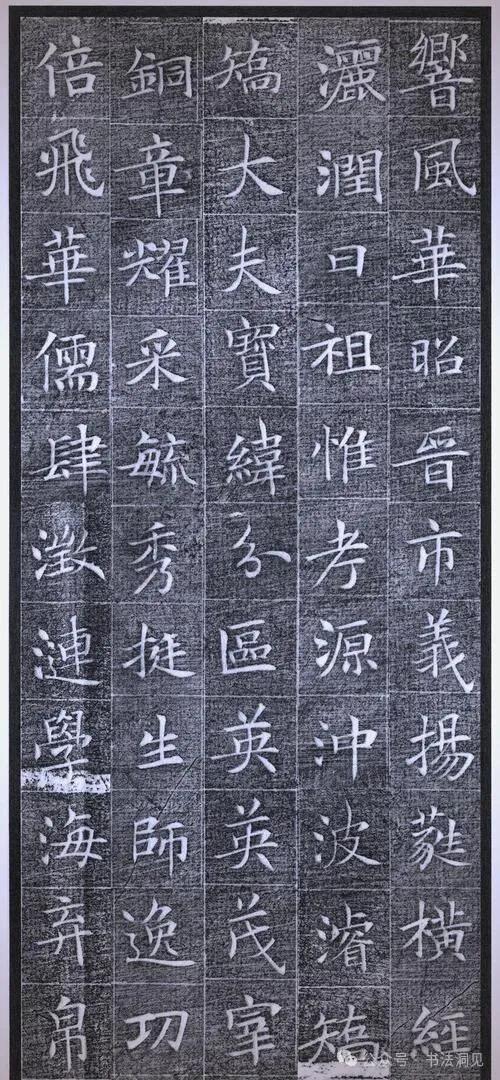 響風華昭晉市義揚蕤橫經
灑潤曰祖惟考源沖波濬矯
矯大夫寶緯分區英英茂宰
銅章耀采毓秀挺生師逸功
倍飛華儒肆澂漣學海弃帛
公众号 · 书法洞见